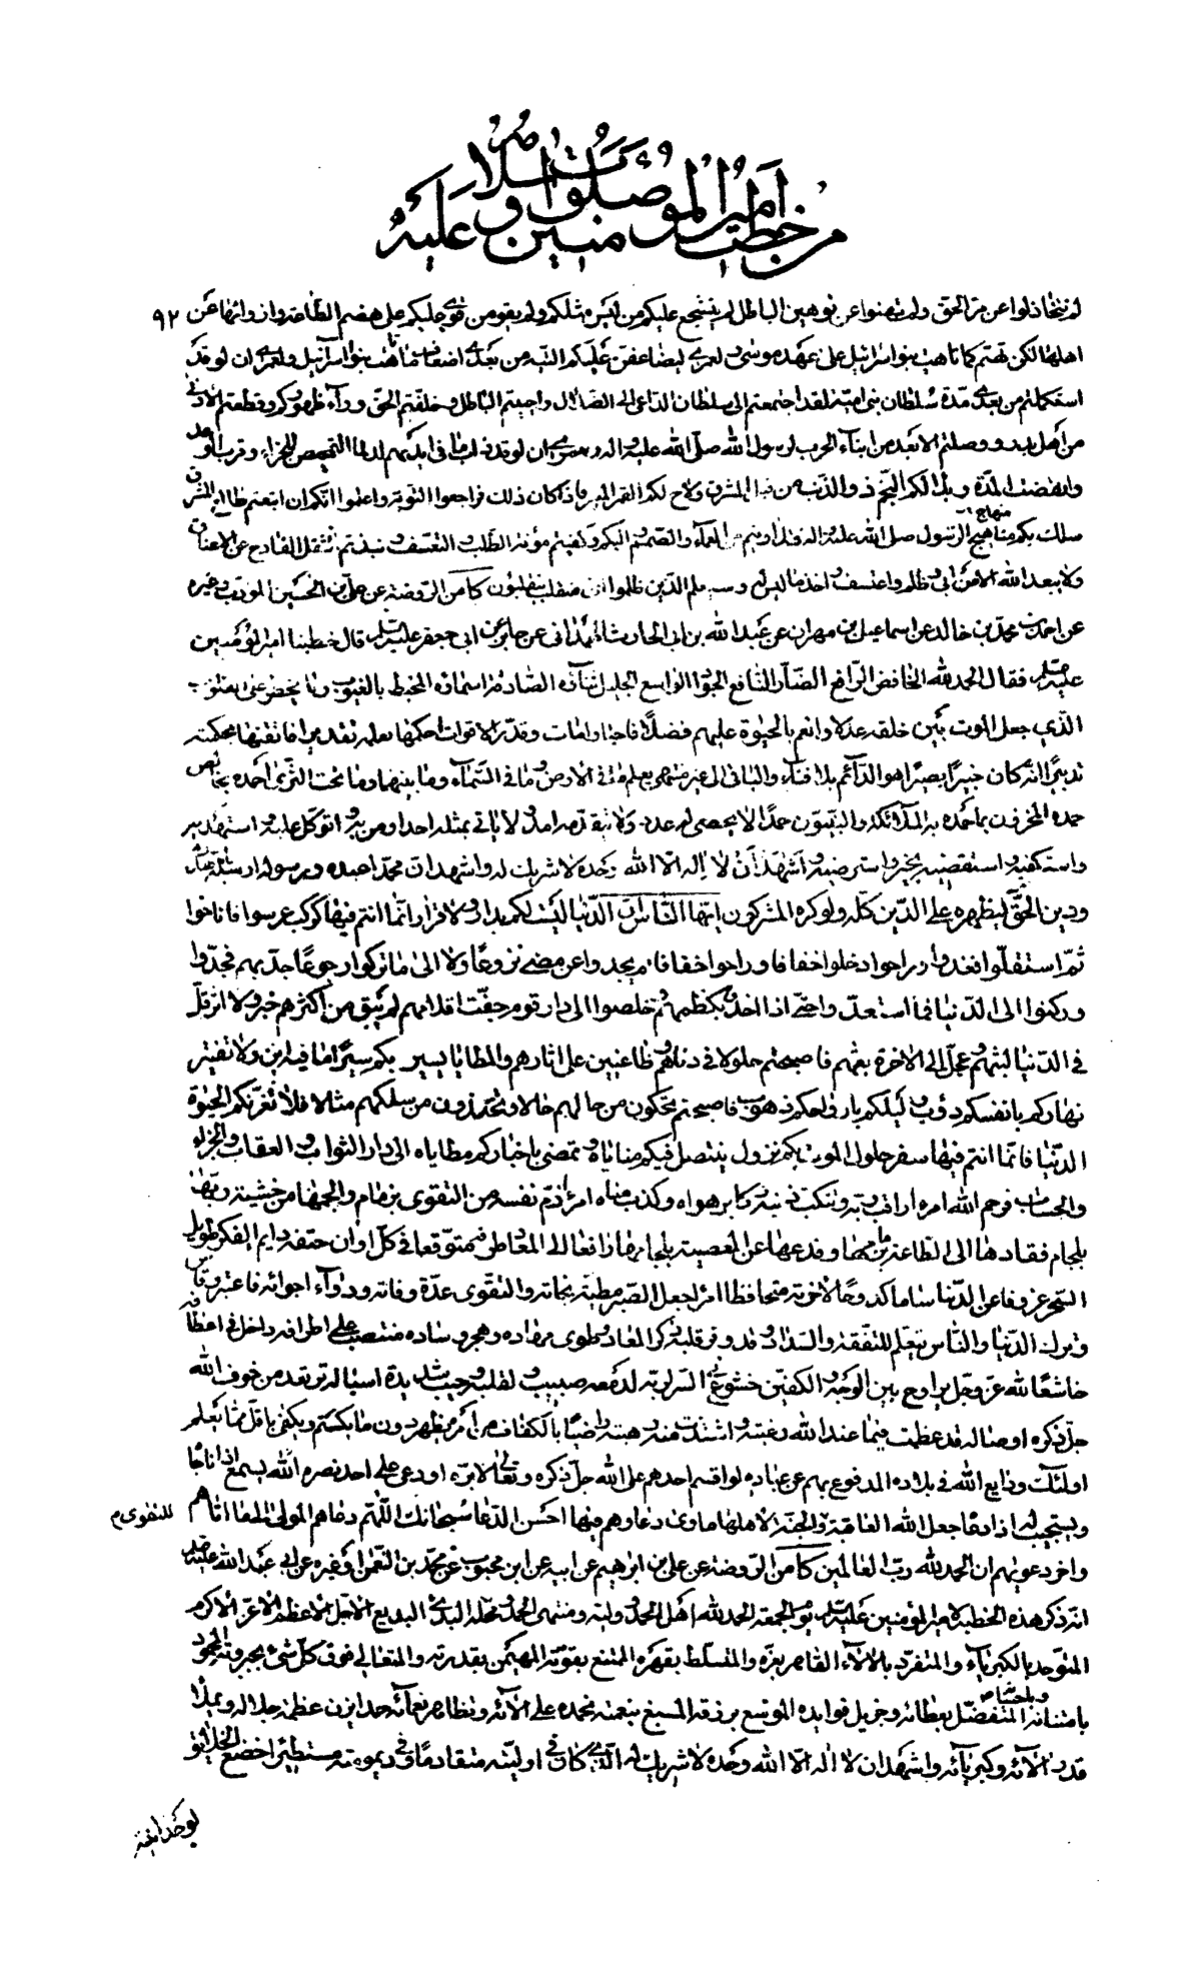 من خطب امير المؤمنين صلوات الله وسلامه عليه
٩٢
لم تتخاذلوا عن مر الحق ولم تهنوا عن توهين الباطل لم يتشجع عليكم من ليس مثلكم ولم يقو من قوى عليكم على هضم الطاعة وازوائها عن
اهلها لكن تهتم كما تاهت بنو اسرائيل على عهد موسى ولعمرى ليضاعفن عليكم التيه من بعدى اضعاف ما تاهت بنو اسرائيل ولعمرى ان لو قد
استكملتم من بعدى مدة سلطان بنى امية لقد اجتمعتم الى سلطان الداعى الى الضلال واحييتم الباطل وخلفتم الحق وراء ظهوركم وقطعتم الادنى
من اهل بدر ووصلتم الابعد من ابناء الحرب لرسول الله صلى الله عليه واله ولعمرى ان لو قد ذاب ما فى ايديهم لدنا التمحيص للجزاء وقرب الوعد
وانقضت المدة وبدا لكم النجم ذو الذنب من قبل المشرق ولاح لكم القمر المنير فاذا كان ذلك فراجعوا التوبة واعلموا انكم ان اتبعتم طالع المشرق
سلك بكم مناهج الرسول صلى الله عليه واله فتداويتم من العماء والصمم والبكم وكفيتم مؤنة الطلب والتعسف ونبذتم ثقل الفادح عن الاعناق
منهاج
ولا يبعد الله الا من ابى وظلم واعتسف واخذ ما ليس له وسيعلم الذين ظلموا اى منقلب ينقلبون كا من الروضة عن على بن الحسين المؤدب وغيره
عن احمد بن محمد بن خالد عن اسماعيل بن مهران عن عبد الله بن ابى الحارث الهمدانى عن جابر عن ابى جعفر عليه السلام قال خطبنا امير المؤمنين
عليه فقال الحمد لله الخافض الرافع الضار النافع الجواد الواسع الجليل ثناؤه الصادقة اسماؤه المحيط بالغيوب وما يخطر على القلوب
الذى جعل الموت بين خلقه عدلا وانعم بالحيوة عليهم فضلا فاحيا وامات وقدر الاقوات احكمها بعلمه تقديرا فاتقنها بحكمته
تدبيرا انه كان خبيرا بصيرا هو الدائم بلا فناء والباقى الى غير منتهى يعلم ما فى الارض وما فى السماء وما بينهما وما تحت الثرى احمده بخالص
حمده المخزون بما حمده به الملائكة والنبيون حمدا لا يحصى له عدد ولا يتقدمه امد ولا ياتى بمثله احد اومن به واتوكل عليه واستهديه
واستكفيه واستقضيه بخير واسترضيه واشهد ان لا اله الا الله وحده لا شريك له واشهد ان محمدا عبده ورسوله ارسله بالهدى
ودين الحق ليظهره على الدين كله ولو كره المشركون ايها الناس ان الدنيا ليست لكم بدار ولا قرار انما انتم فيها كركب عرسوا فاناخوا
ثم استقلوا فغدوا وراحوا دخلوا خفافا وراحوا خفافا لم يجدوا عن مضى نزوعا ولا الى ما تركوا رجوعا جد بهم فجدوا
وركنوا الى الدنيا فما استعدوا حتى اذا اخذ بكظمهم وخلصوا الى دار قوم جفت اقلامهم لم يبق من اكثرهم خبر ولا اثر قل
فى الدنيا لبثهم وعجل الى الاخرة بعثهم فاصبحتم حلولا فى ديارهم ظاعنين على اثارهم والمطايا تسير بكم سيرا ما فيه اين ولا تفتير
نهاركم بانفسكم دؤوب وليلكم بارواحكم ذهوب فاصبحتم تحكون من حالهم حالا وتحتذون من مسلكهم مثالا فلا تغرنكم الحيوة
الدنيا فانما انتم فيها سفر حلول الموت بكم نزول ينتضل فيكم مناياه وتمضى باخباركم مطاياه الى دار الثواب والعقاب والجزاء
والحساب فرحم الله امرءا راقب ربه وتنكب ذنبه وكابر هواه وكذب مناه امرءا زم نفسه من التقوى بزمام والجمها من خشية ربها
بلجام فقادها الى الطاعة بزمامها وقدعها عن المعصية بلجامها رافعا الى المعاد طرفه متوقعا فى كل اوان حتفه دايم الفكر طويل
السهر عزوفا عن الدنيا ساما كدوحا لاخرته متحافظا امرءا جعل الصبر مطية نجاته والتقوى عدة وفاته ودواء اجوائه فاعتبر وقاس
وترك الدنيا والناس يتعلم للتفقه والسداد وقد وقر قلبه ذكر المعاد وطوى مهاده وهجر وساده منتصب على اطرافه داخل فى اعطافه
خاشعا لله عز وجل يراوح بين الوجه والكفين خشوع فى السر لربه لدمعه صبيب ولقلبه وجيب شديدة اسباله ترتعد من خوف الله
جل ذكره اوصاله قد عظمت فيما عند الله رغبته واشتدت منه رهبته راضيا بالكفاف من امره يظهر دون ما يكتم ويكتفى باقل مما يعلم
اولئك ودايع الله فى بلاده المدفوع بهم عن عباده لو اقسم احدهم على الله جل ذكره وتعالى لابره او دعى على احد نصره الله يسمع اذا ناجاه
ويستجيب له اذا دعاه جعل الله العاقبة والجنة لاهلها ماوى دعاؤهم فيها احسن الدعاء سبحانك اللهم دعاهم المولى الى ما اتاهم
للتقوى م
واخر دعويهم ان الحمد لله رب العالمين كا من الروضة عن على بن ابرهيم عن ابيه عن ابن محبوب عن محمد بن النعمان او غيره عن ابى عبد الله عليه
انه ذكر هذه الخطبة لامير المؤمنين عليه السلام يوم الجمعة الحمد لله اهل الحمد ووليه ومنتهى الحمد ومحله البدئ البديع الاجل الاعظم الاعز الاكرم
المتوحد بالكبرياء والمتفرد بالالاء القاهر بعزه والمتسلط بقهره الممتنع بقوته المهيمن بقدرته والمتعالى فوق كل شئ بجبروته المحمود
بامتنانه المتفضل بعطائه وجزيل فوايده الموسع برزقه المسبغ بنعمته نحمده على الائه وتظاهر نعمائه حمدا يزن عظمة جلاله ويملا
وباحسانه
قدر الائه وكبريائه واشهد ان لا اله الا الله وحده لا شريك له الذى كان فى اوليته متقادما وفى ديموميته متسيطرا خضع الخلائق
لوحدانيته